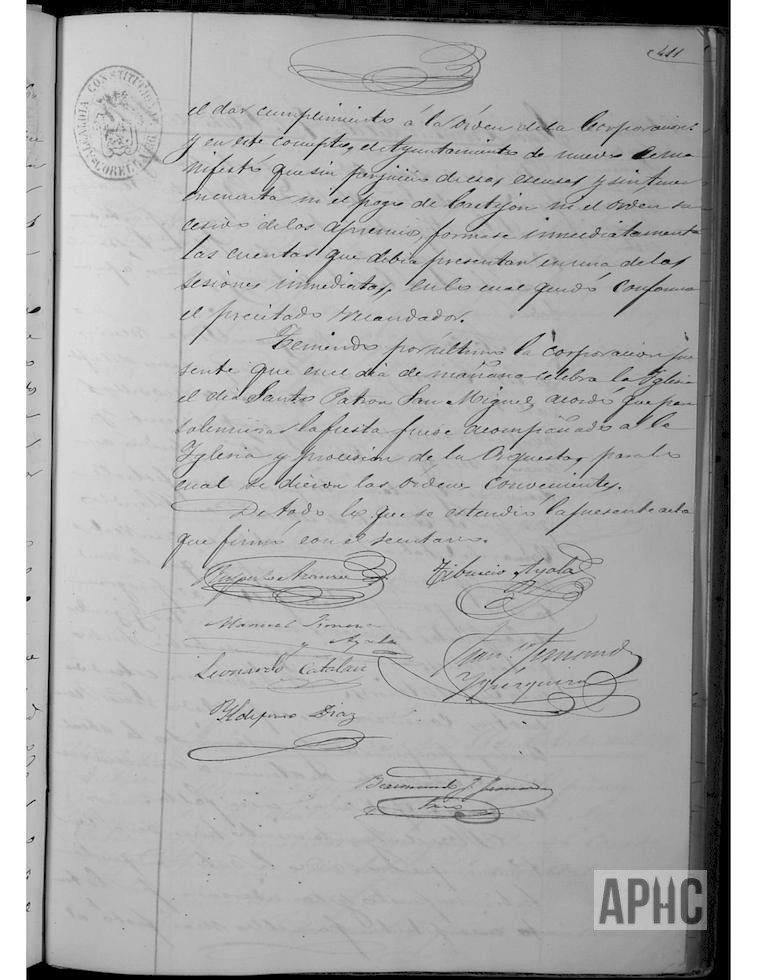 411
ALCALDIA CONSTITUCIONAL
CORELLA
el dar cumplimiento á la orden de la Corporacion:
y en este concepto, el Ayuntamiento de nuevo le ma
nifestó que sin perjuicio de esas escusas y sin tener
en cuenta ni el pago de Castejon ni el orden su
cesivo de los apremios, formase inmediatamente
las cuentas que debia presentar en una de las
sesiones inmediatas, en lo cual quedó conforme
el precitado recaudador.
Teniendo por último la corporacion pre
sente que en el dia de mañana celebra la Iglesia
el dia Santo Patron San Miguel, acordó que para
solemnizar la fiesta fuese acompañado a la
Yglesia y procesion de la Orquesta, para lo
cual se dieron las órdenes convenientes.
De todo lo que se estendió la presente acta
que firmó con el secretario.
Tiburcio Ayala
Manuel Jimenez
y Ayala
Leonardo Catalan
Yldefonso Diaz
APHC